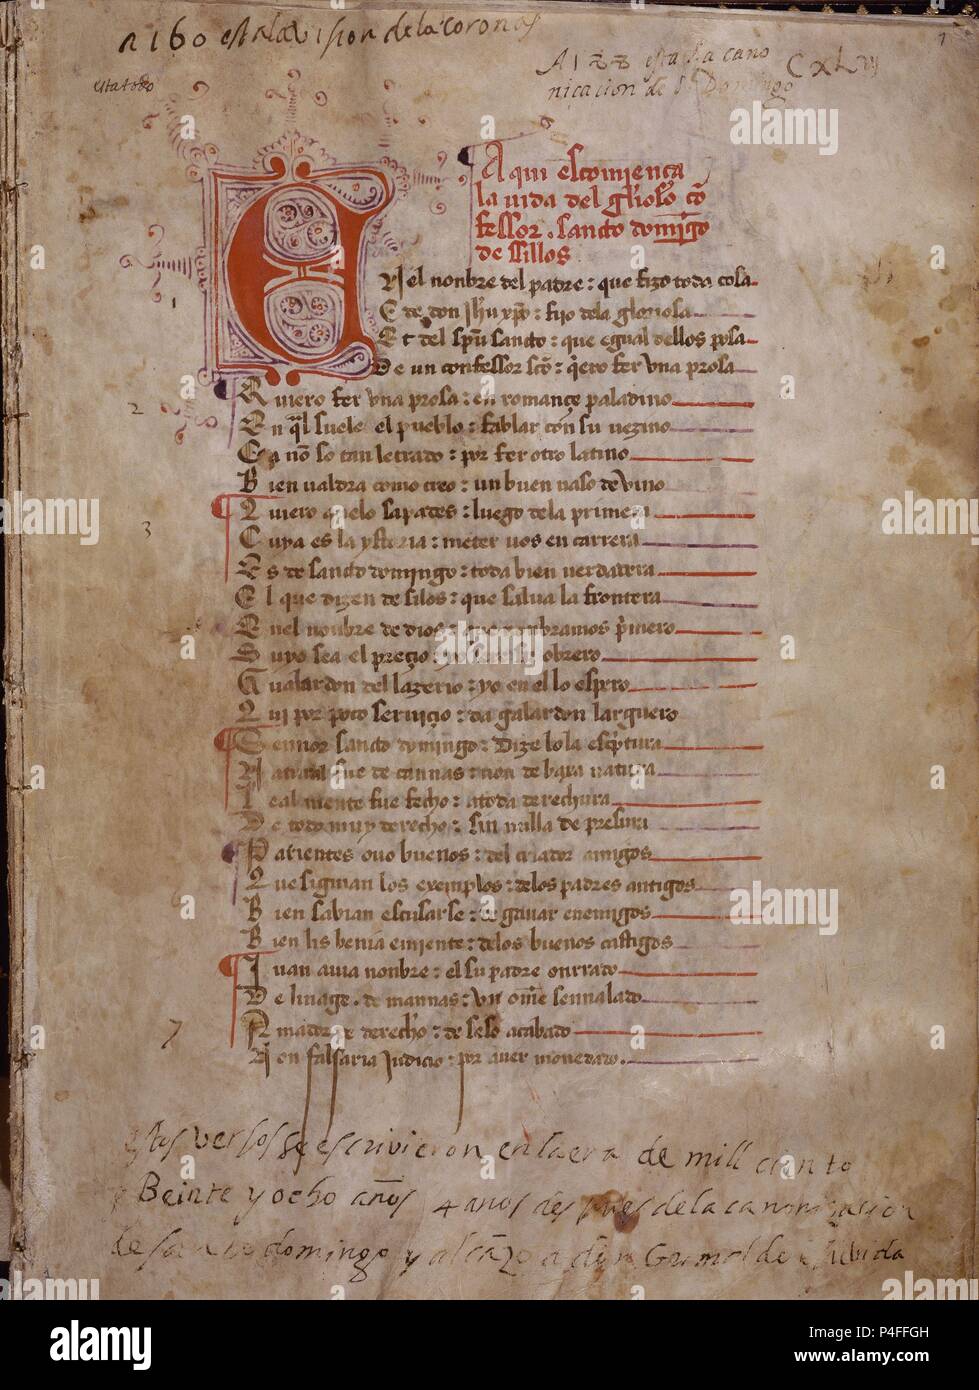 a 160 esta la vision de las coronas
A 188 esta la cano
nicacion de Sto Domingo
estatodo
1
Aqui escomiença
la uida del gl'ioso cō
fessor . sancto domīgo
de sillos
EN el nonbre del padre : que fizo toda cosa
E de don ihū xpō : fijo dela gloriosa
Et del spū sancto : que egual dellos posa
De un confessor scō : q̄ero fer vna prosa
Quiero fer vna prosa : en romançe paladino
2
En q̄l suele el pueblo : fablar con su uezino
Ca nō so tan letrado : por fer otro latino
Bien ualdra como creo : un buen uaso de vino
Quiero q̄ lo sapades : luego dela primera
3
Cuya es la ystoria : meter uos en carrera
Es de sancto domingo : toda bien uerdadera
El que dizen de silos : que salua la frontera
Enel nonbre de dios : que nonbramos p̄mero
Suyo sea el preçio : yo obrero
Gualardon del lazerio : yo en el lo espero
Qui por poco seruiçio : da galardon larguero
Sennor sancto domingo : dize lo la esc̄ptura
Natural fue de cannas : non de baxa natura
Leal miente fue fecho : a toda derechura
De todo muy derecho : sin nulla de presura
Parientes ouo buenos : del criador amigos
Que siguian los exemplos : delos padres antigos
Bien sabian escusarse : de ganar enemigos
Bien lis benia emiente : delos buenos castigos
Iuan auia nonbre : el su padre onrrado
De linage . de mannas : vn om̄e sennalado
Amador de derecho : de seso acabado
7
Non falsaria iudicio : por auer monedado .
estos versos se escrivieron en la era de mill ciento
y Beinte y ocho años 4 años despues de la canonizacion
de santo domingo y alcāzo a dōn Grimalde
alamy
Image ID: P4FFGH
www.alamy.com